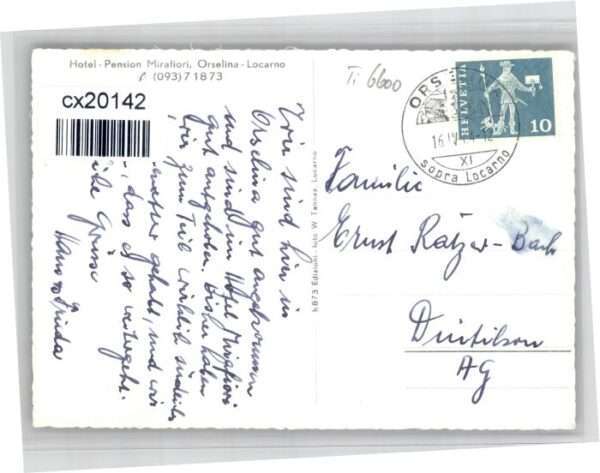 Hotel - Pension Mirafiori, Orselina - Locarno
(093) 71873
cx20142
Wir sind hier in
Orselina gut angekommen
und sind im Hotel Mirafiori
gut aufgehoben. Bisher haben
wir zum Teil wirklich
Wetter gehabt, und wir
dass es so weitergeht.
Grüsse
Hans & Frida
6873 Edizioni - foto W. Tannaz, Locarno
Ti 6600
ORS
16.IV
XI
sopra Locarno
HELVETIA
10
Familie
Ernst Rätzer-Bach
Dintikon
AG